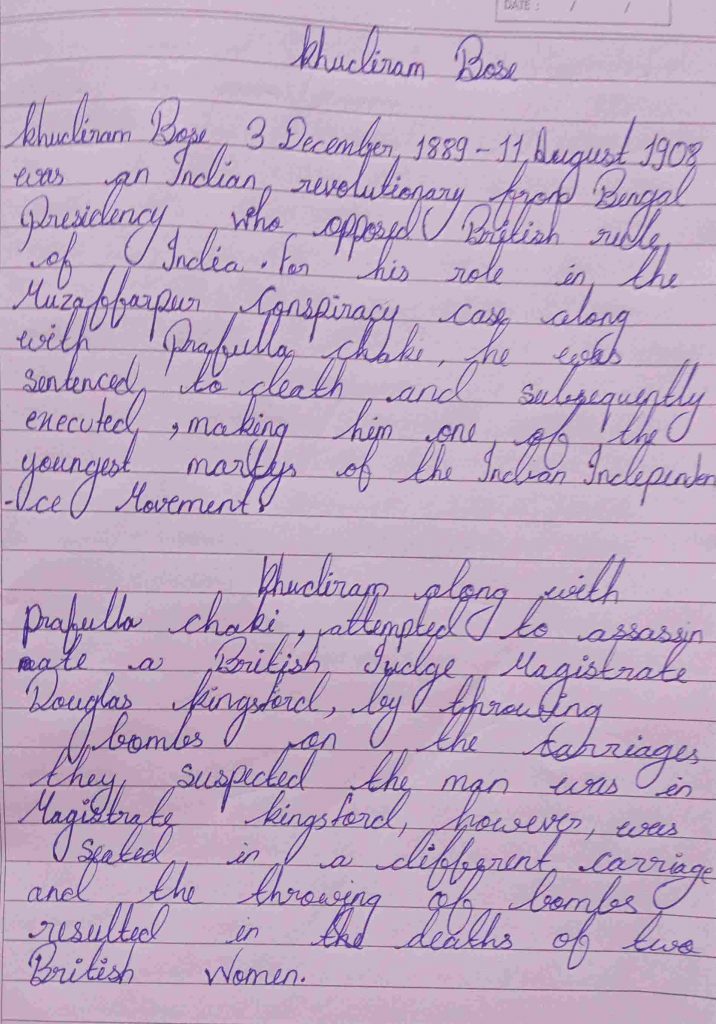 DATE : / /
Khudiram Bose
Khudiram Bose 3 December 1889 - 11 August 1908
was an Indian revolutionary from Bengal
Presidency who opposed British rule
of India. For his role in the
Muzaffarpur Conspiracy case along
with Prafulla chaki, he was
sentenced to death and subsequently
executed, making him one of the
youngest martys of the Indian Independen
-ce Movement.
Khudiram along with
Prafulla chaki, attempted to assassin
ate a British Judge Magistrate
Douglas kingsford, by throwing
bombs on the carriages
they suspected the man was in
Magistrate kingsford, however, was
Seated in a different carriage
and the throwing of bombs
resulted in the deaths of two
British Women.